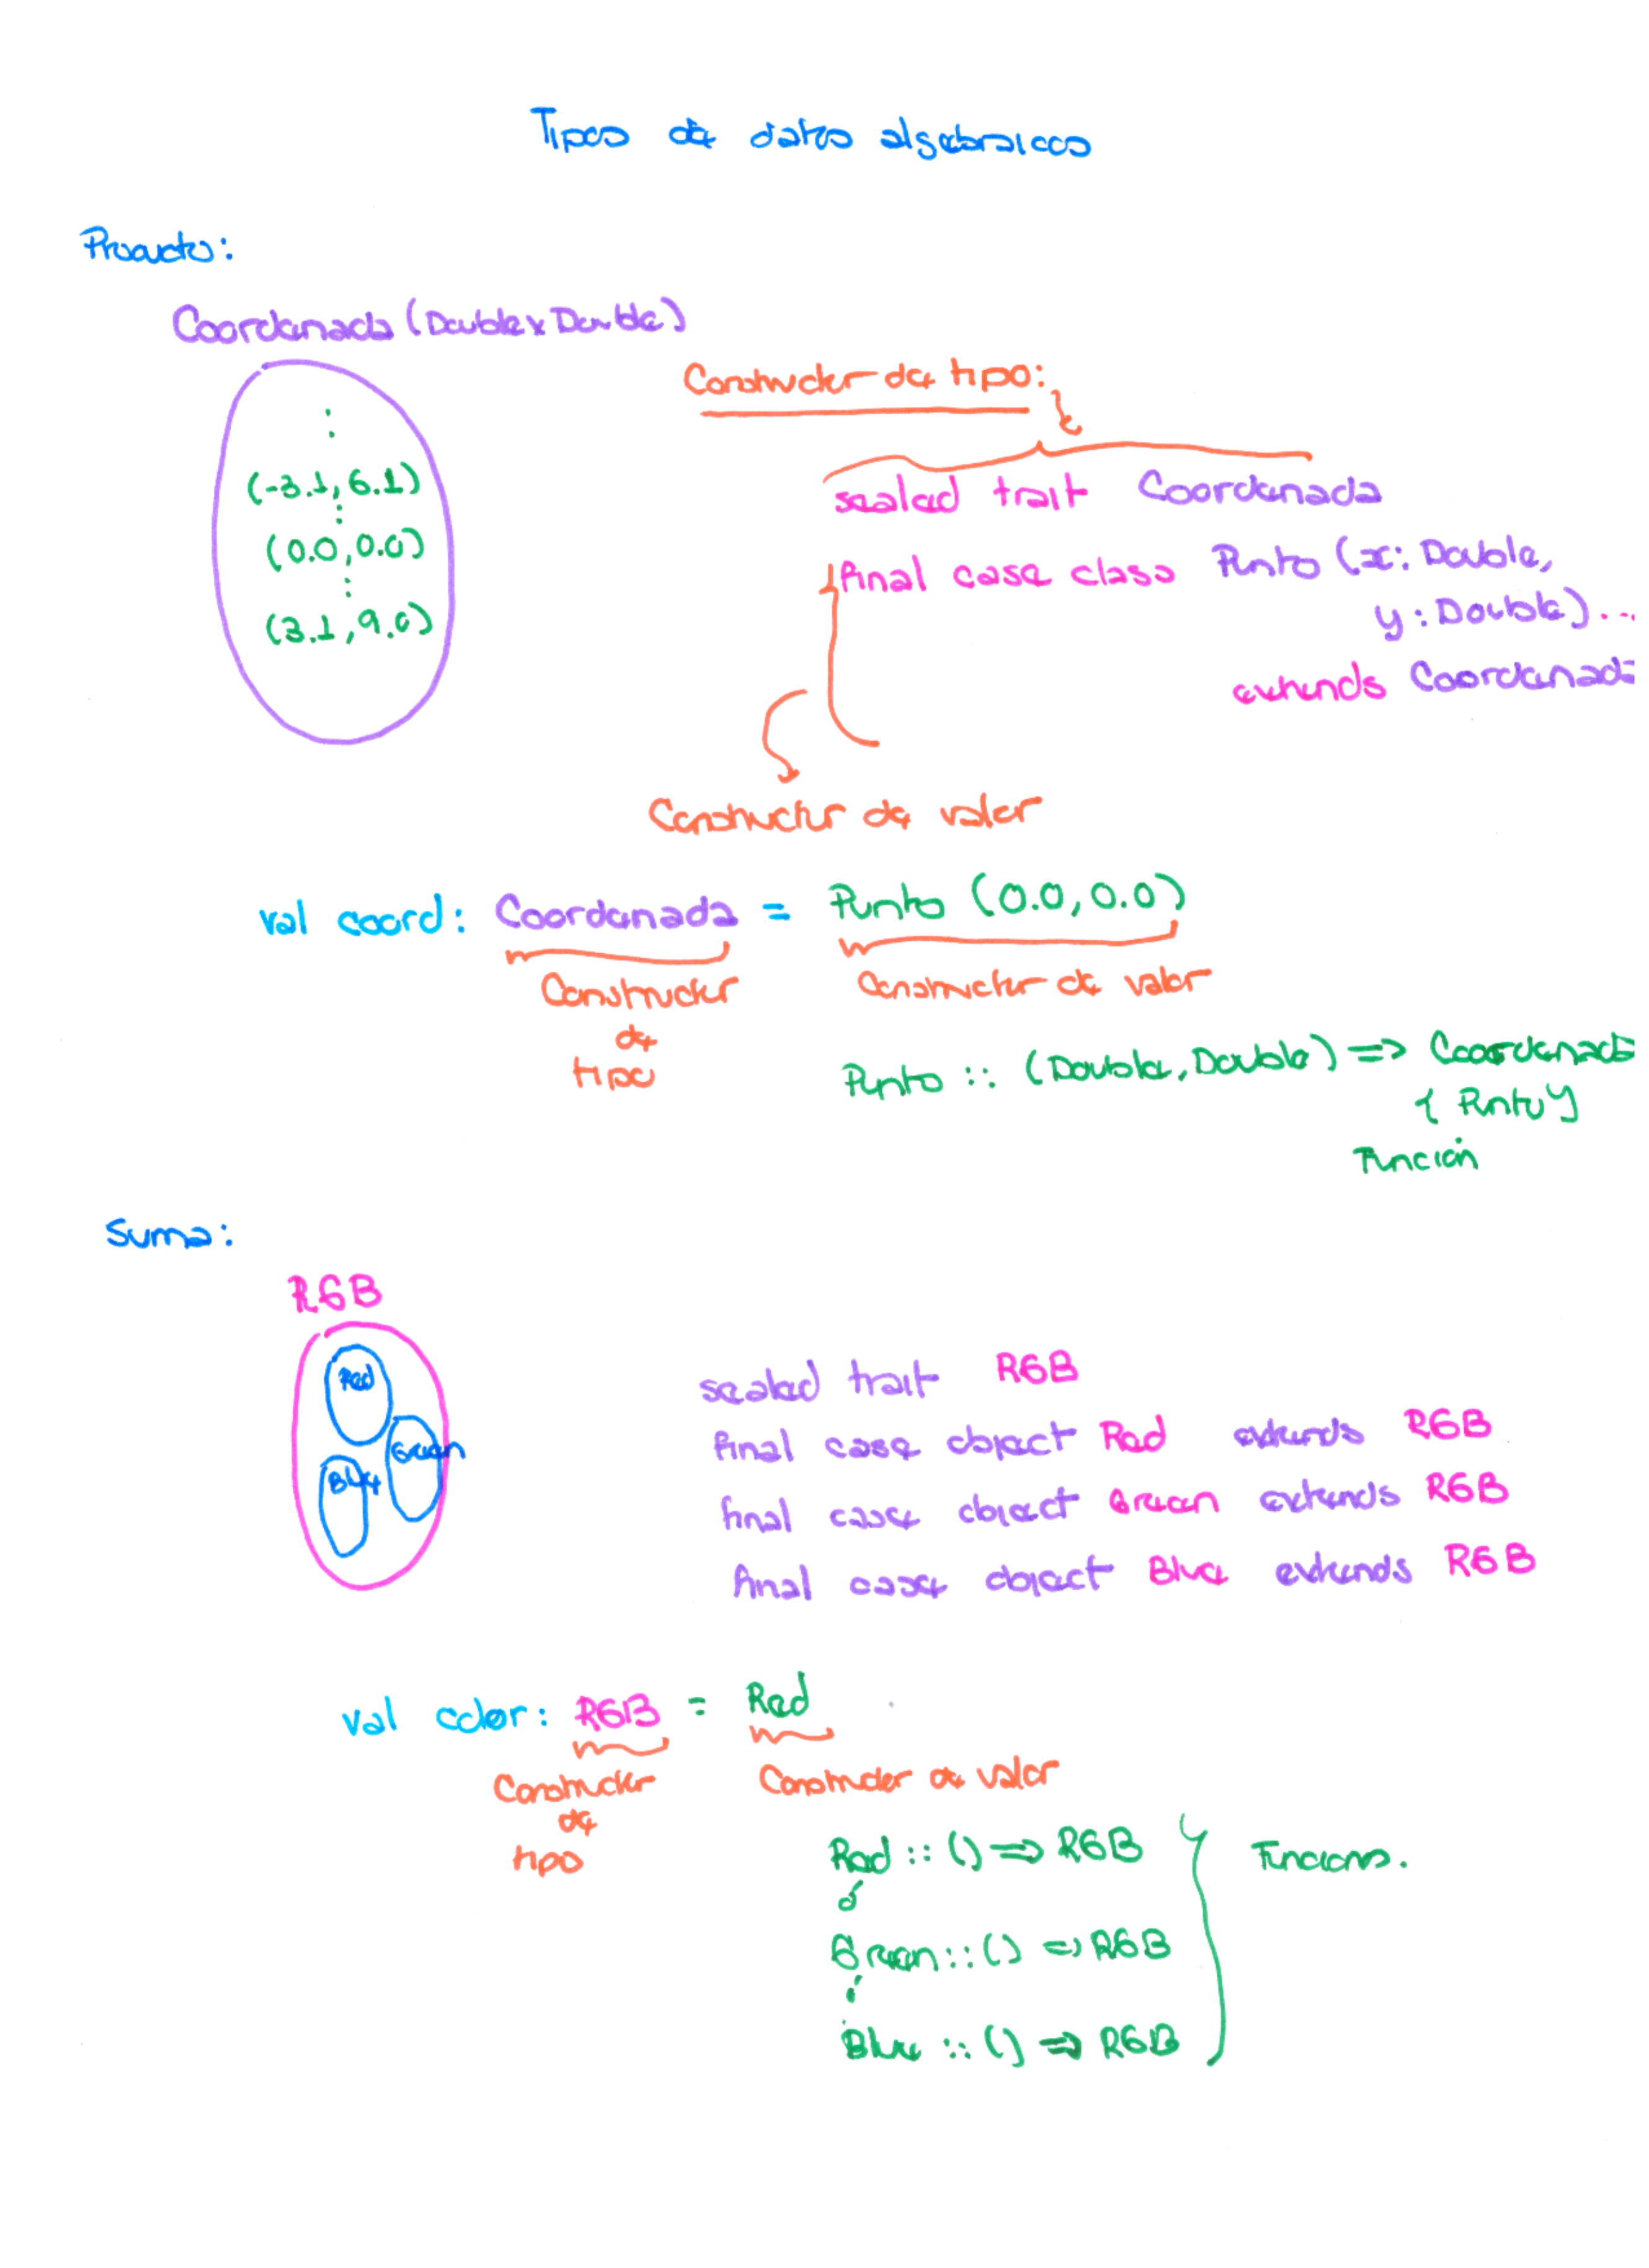 Tipos de datos algebraicos
Producto:
Coordenada (Double x Double)
Constructor de tipo:
(-3.1, 6.1)
(0.0, 0.0)
(3.1, 9.0)
sealed trait Coordenada
final case class Punto (x: Double,
y: Double) ...
extends Coordenada
Constructor de valor
val coord: Coordenada = Punto (0.0, 0.0)
Constructor
de
tipo
Constructor de valor
Punto :: (Double, Double) => Coordenada
{ Punto }
Función
Suma:
RGB
Red
Green
Blue
sealed trait RGB
final case object Red extends RGB
final case object Green extends RGB
final case object Blue extends RGB
val color: RGB = Red
Constructor
de
tipo
Constructor de valor
Red :: () => RGB
ó
Green :: () => RGB
Blue :: () => RGB
Funciones.